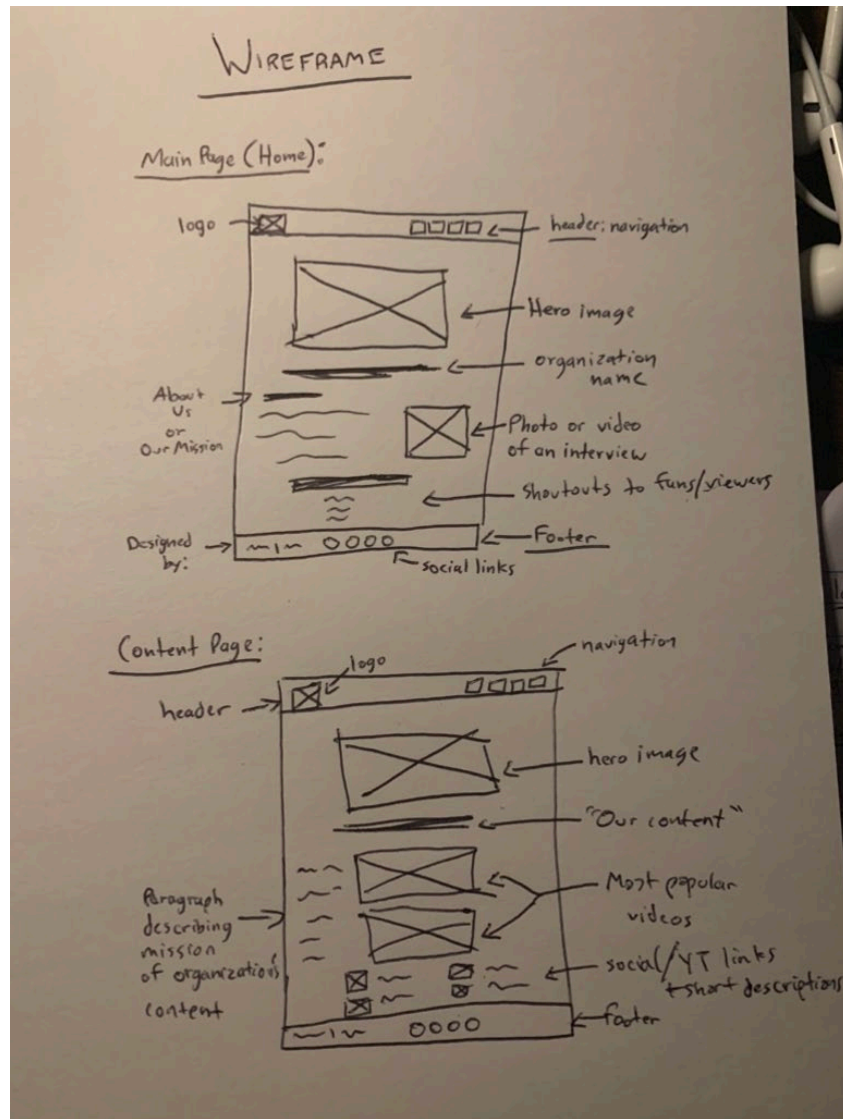 WIREFRAME
Main Page (Home):
logo
header: navigation
Hero image
organization
name
About
Us
or
Our Mission
Photo or video
of an interview
shoutouts to fans/viewers
Designed
by:
Footer
social links
Content Page:
navigation
logo
header
hero image
"Our content"
Most popular
videos
Paragraph
describing
mission
of organization's
content
social/YT links
+ short descriptions
footer